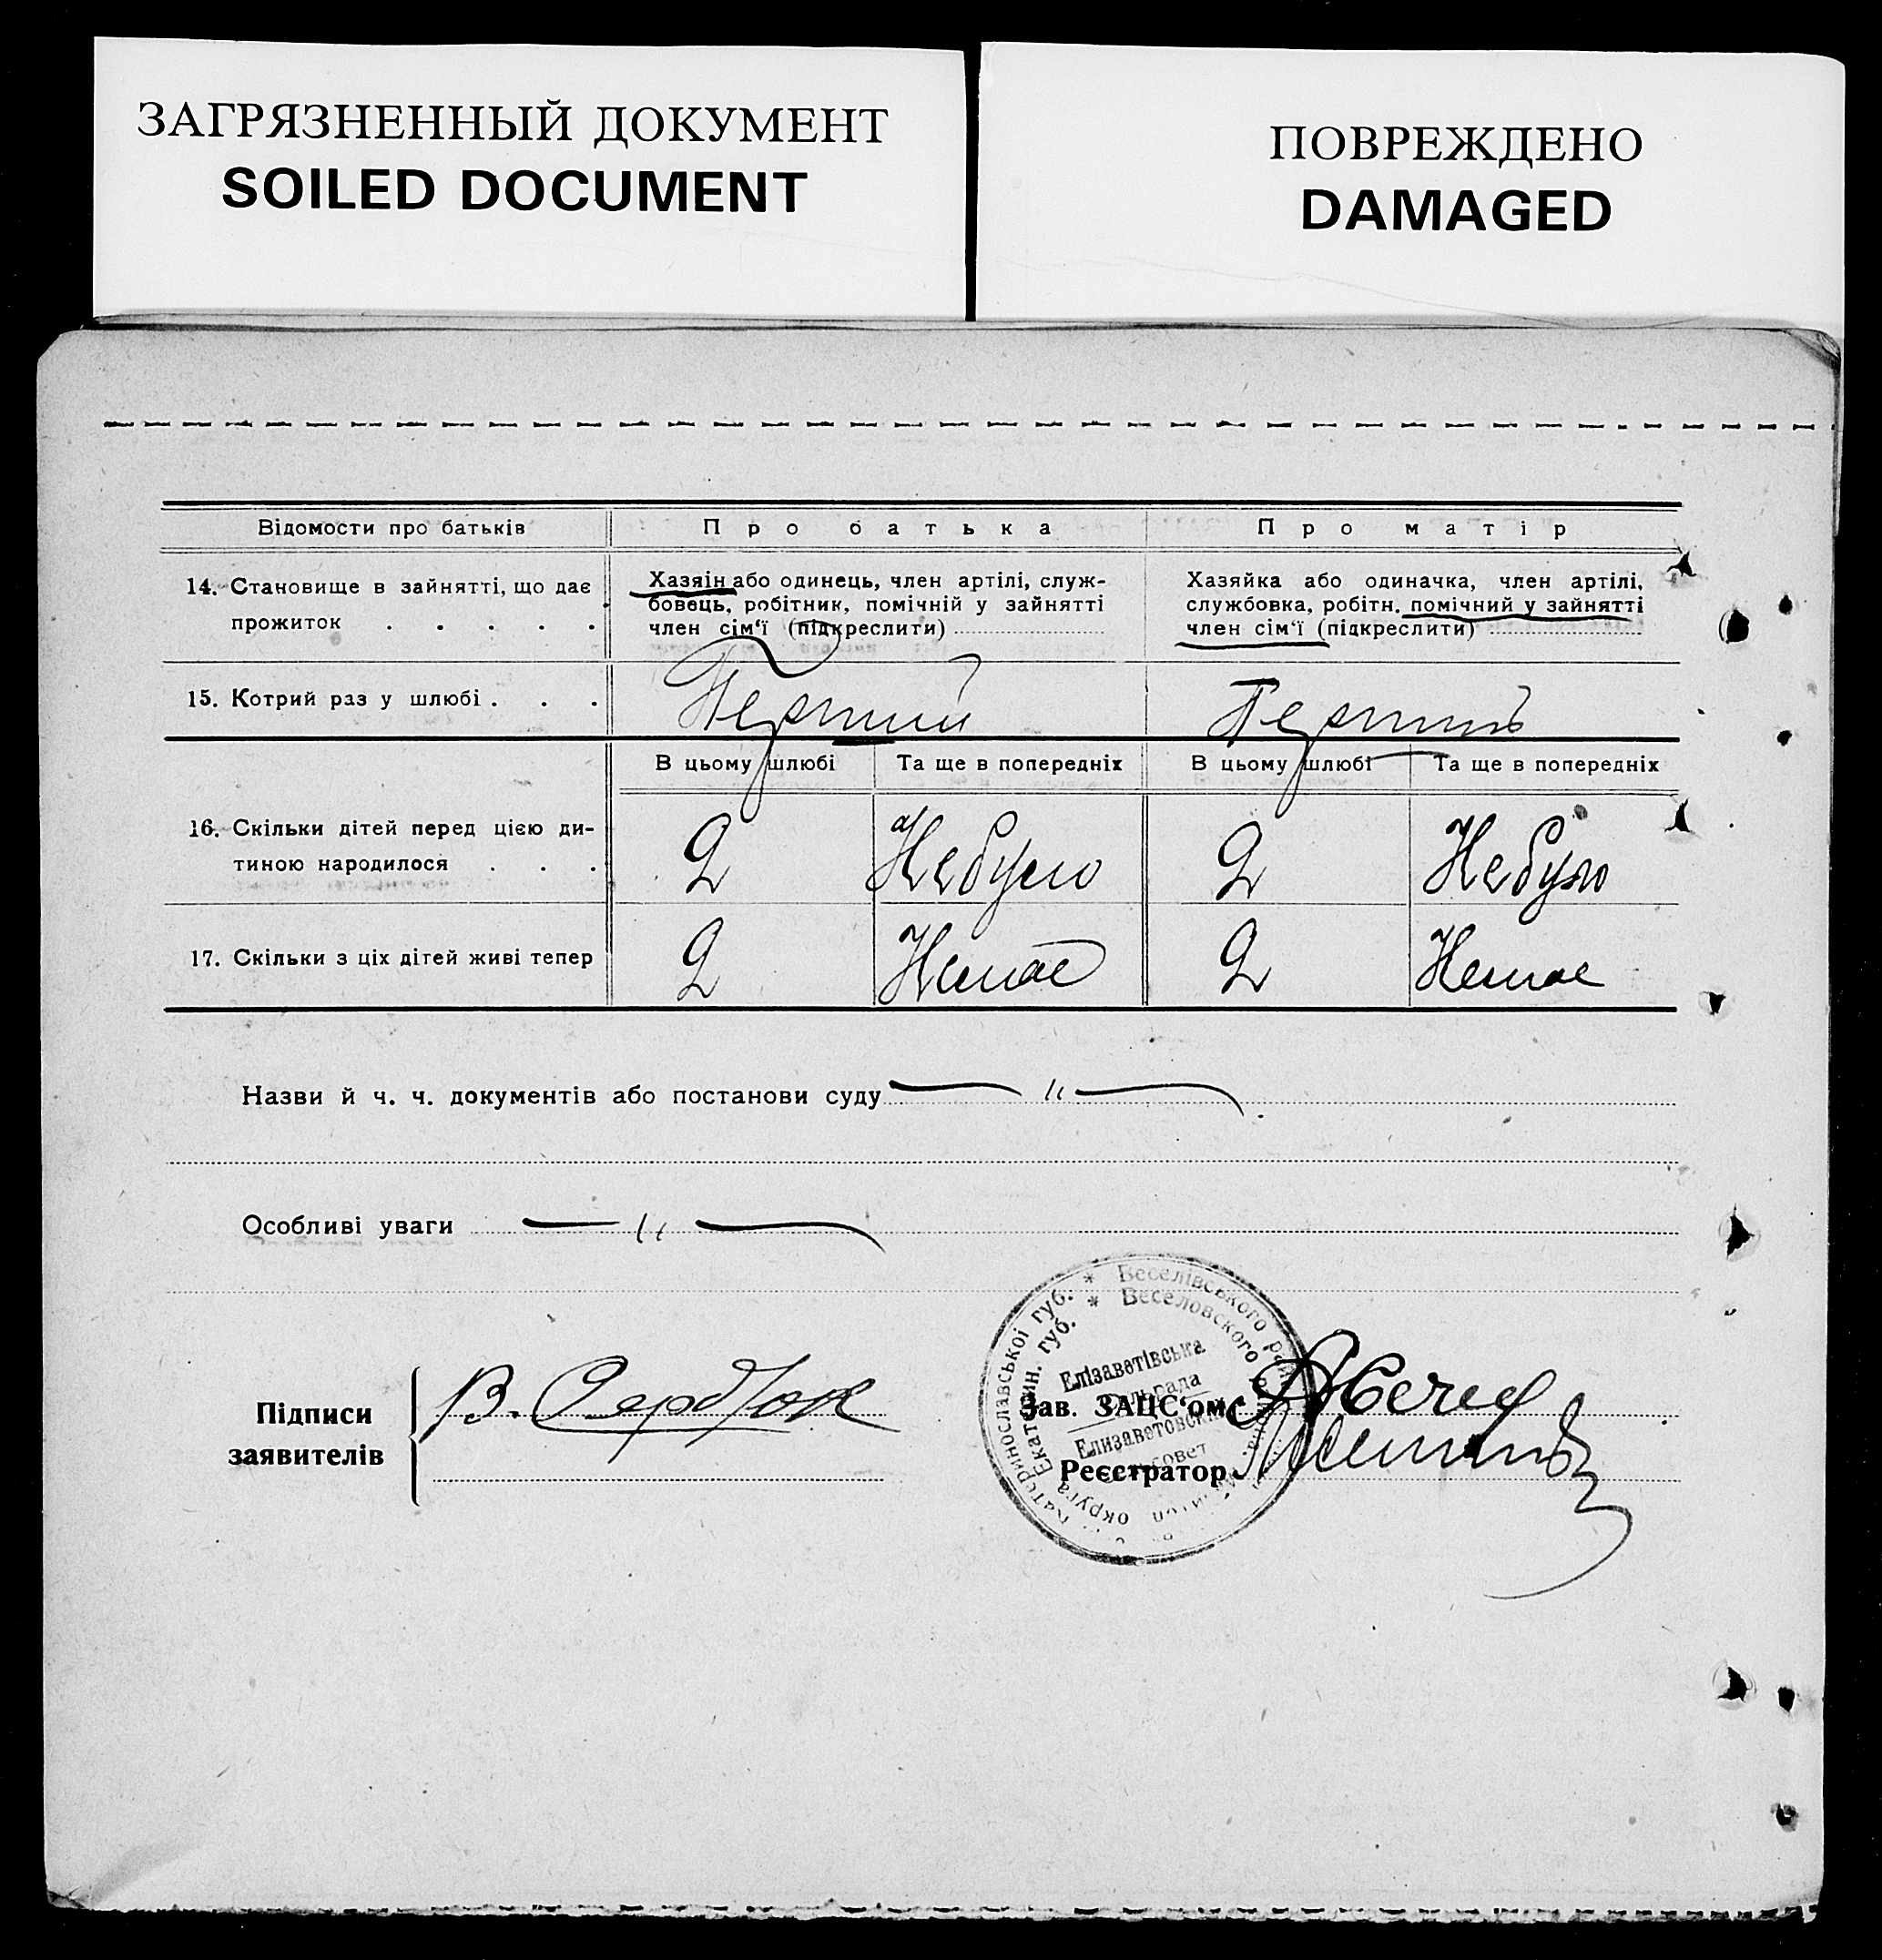 ЗАГРЯЗНЕННЫЙ ДОКУМЕНТ
SOILED DOCUMENT
ПОВРЕЖДЕНО
DAMAGED
Відомости про батьків
Про батька
Про матір
14. Становище в зайнятті, що дає
прожиток . . . . .
Хазяін або одинець, член артілі, служ-
бовець, робітник, помічній у зайнятті
член сім‘ї (підкреслити)
Хазяйка або одиначка, член артілі,
службовка, робітн. помічний у зайнятті
член сім‘ї (підкреслити)
15. Котрий раз у шлюбі . . .
Перший
Перший
В цьому шлюбі
Та ще в попередніх
В цьому шлюбі
Та ще в попередніх
16. Скільки дітей перед цією ди-
тиною народилося . . .
2
Небуло
2
Небуло
17. Скільки з ціх дітей живі тепер
2
Немає
2
Немає
Назви й ч. ч. документів або постанови суду — " —
Особливі уваги — " —
* Веселівського рай
* Веселовского
Катеринославської губ.
округа Екатерин. губ.
Елізаветівська
Сільрада
Елизаветовский
совет
Підписи
заявителів
В. Сердюк
Зав. ЗАЦС‘ом
Реєстратор